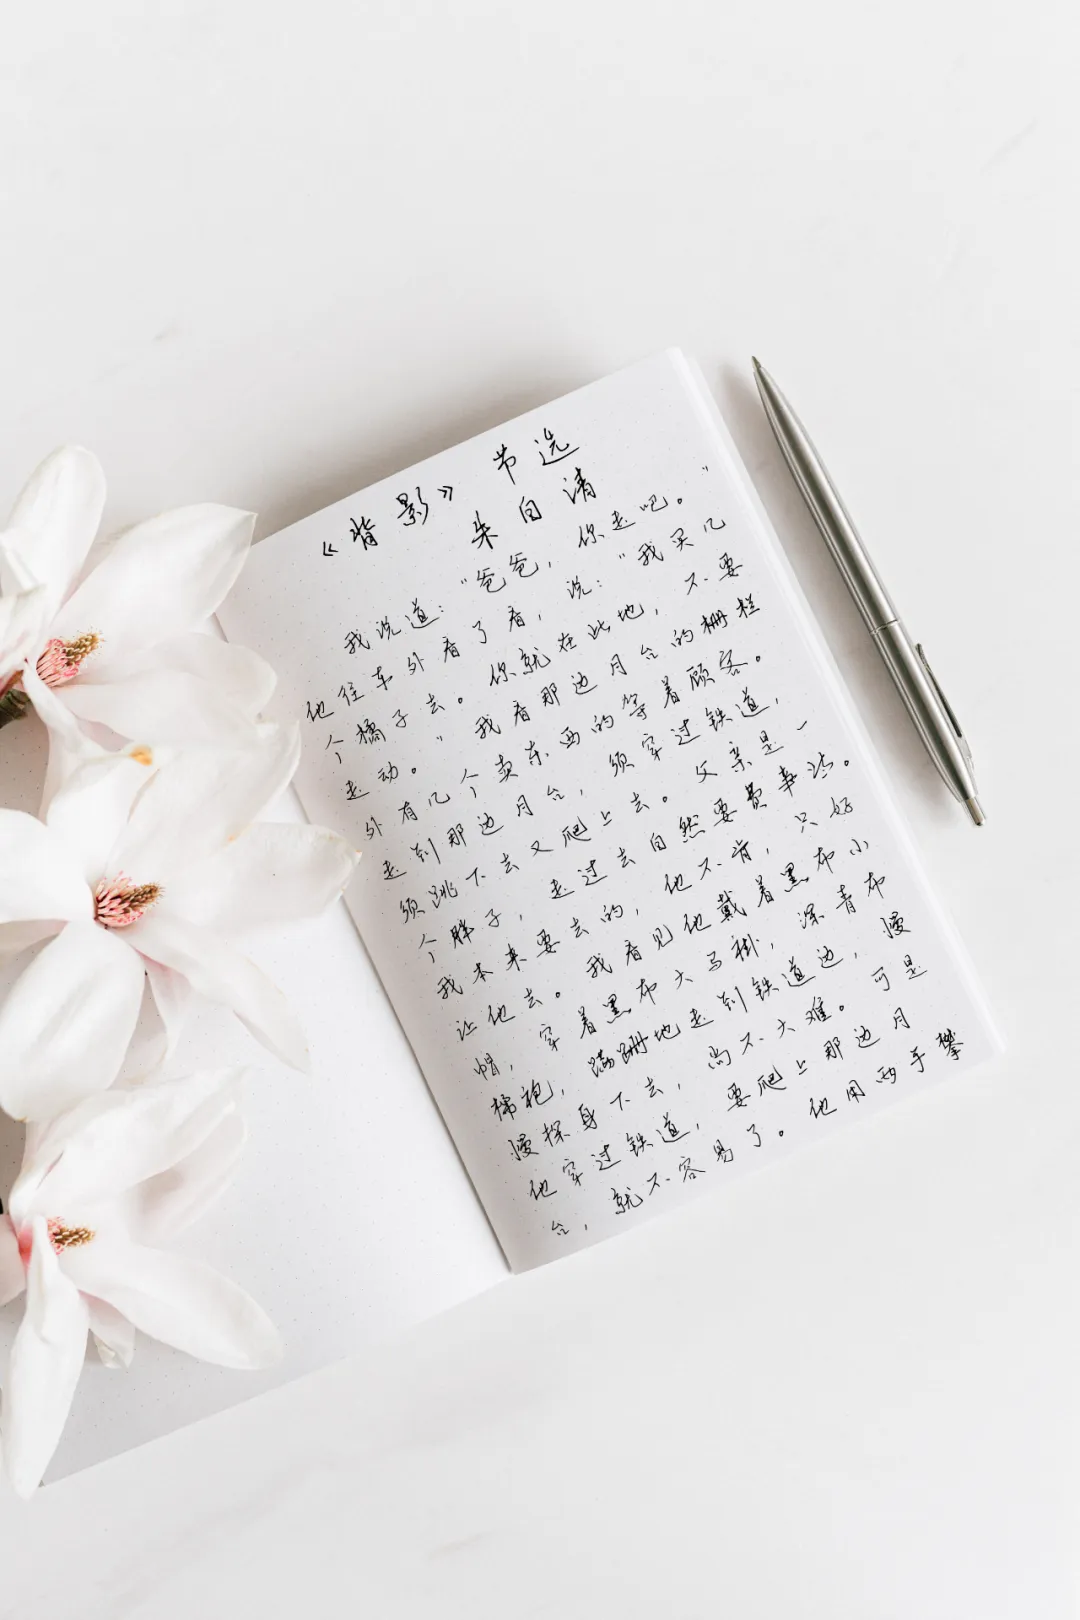 《背影》 节选
朱自清
我说道：“爸爸，你走吧。”
他往车外看了看，说：“我买几
个橘子去。你就在此地，不要
走动。”我看那边月台的栅栏
外有几个卖东西的等着顾客。
走到那边月台，须穿过铁道，
须跳下去又爬上去。父亲是一
个胖子，走过去自然要费事些。
我本来要去的，他不肯，只好
让他去。我看见他戴着黑布小
帽，穿着黑布大马褂，深青布
棉袍，蹒跚地走到铁道边，慢
慢探身下去，尚不大难。可是
他穿过铁道，要爬上那边月
台，就不容易了。他用两手攀